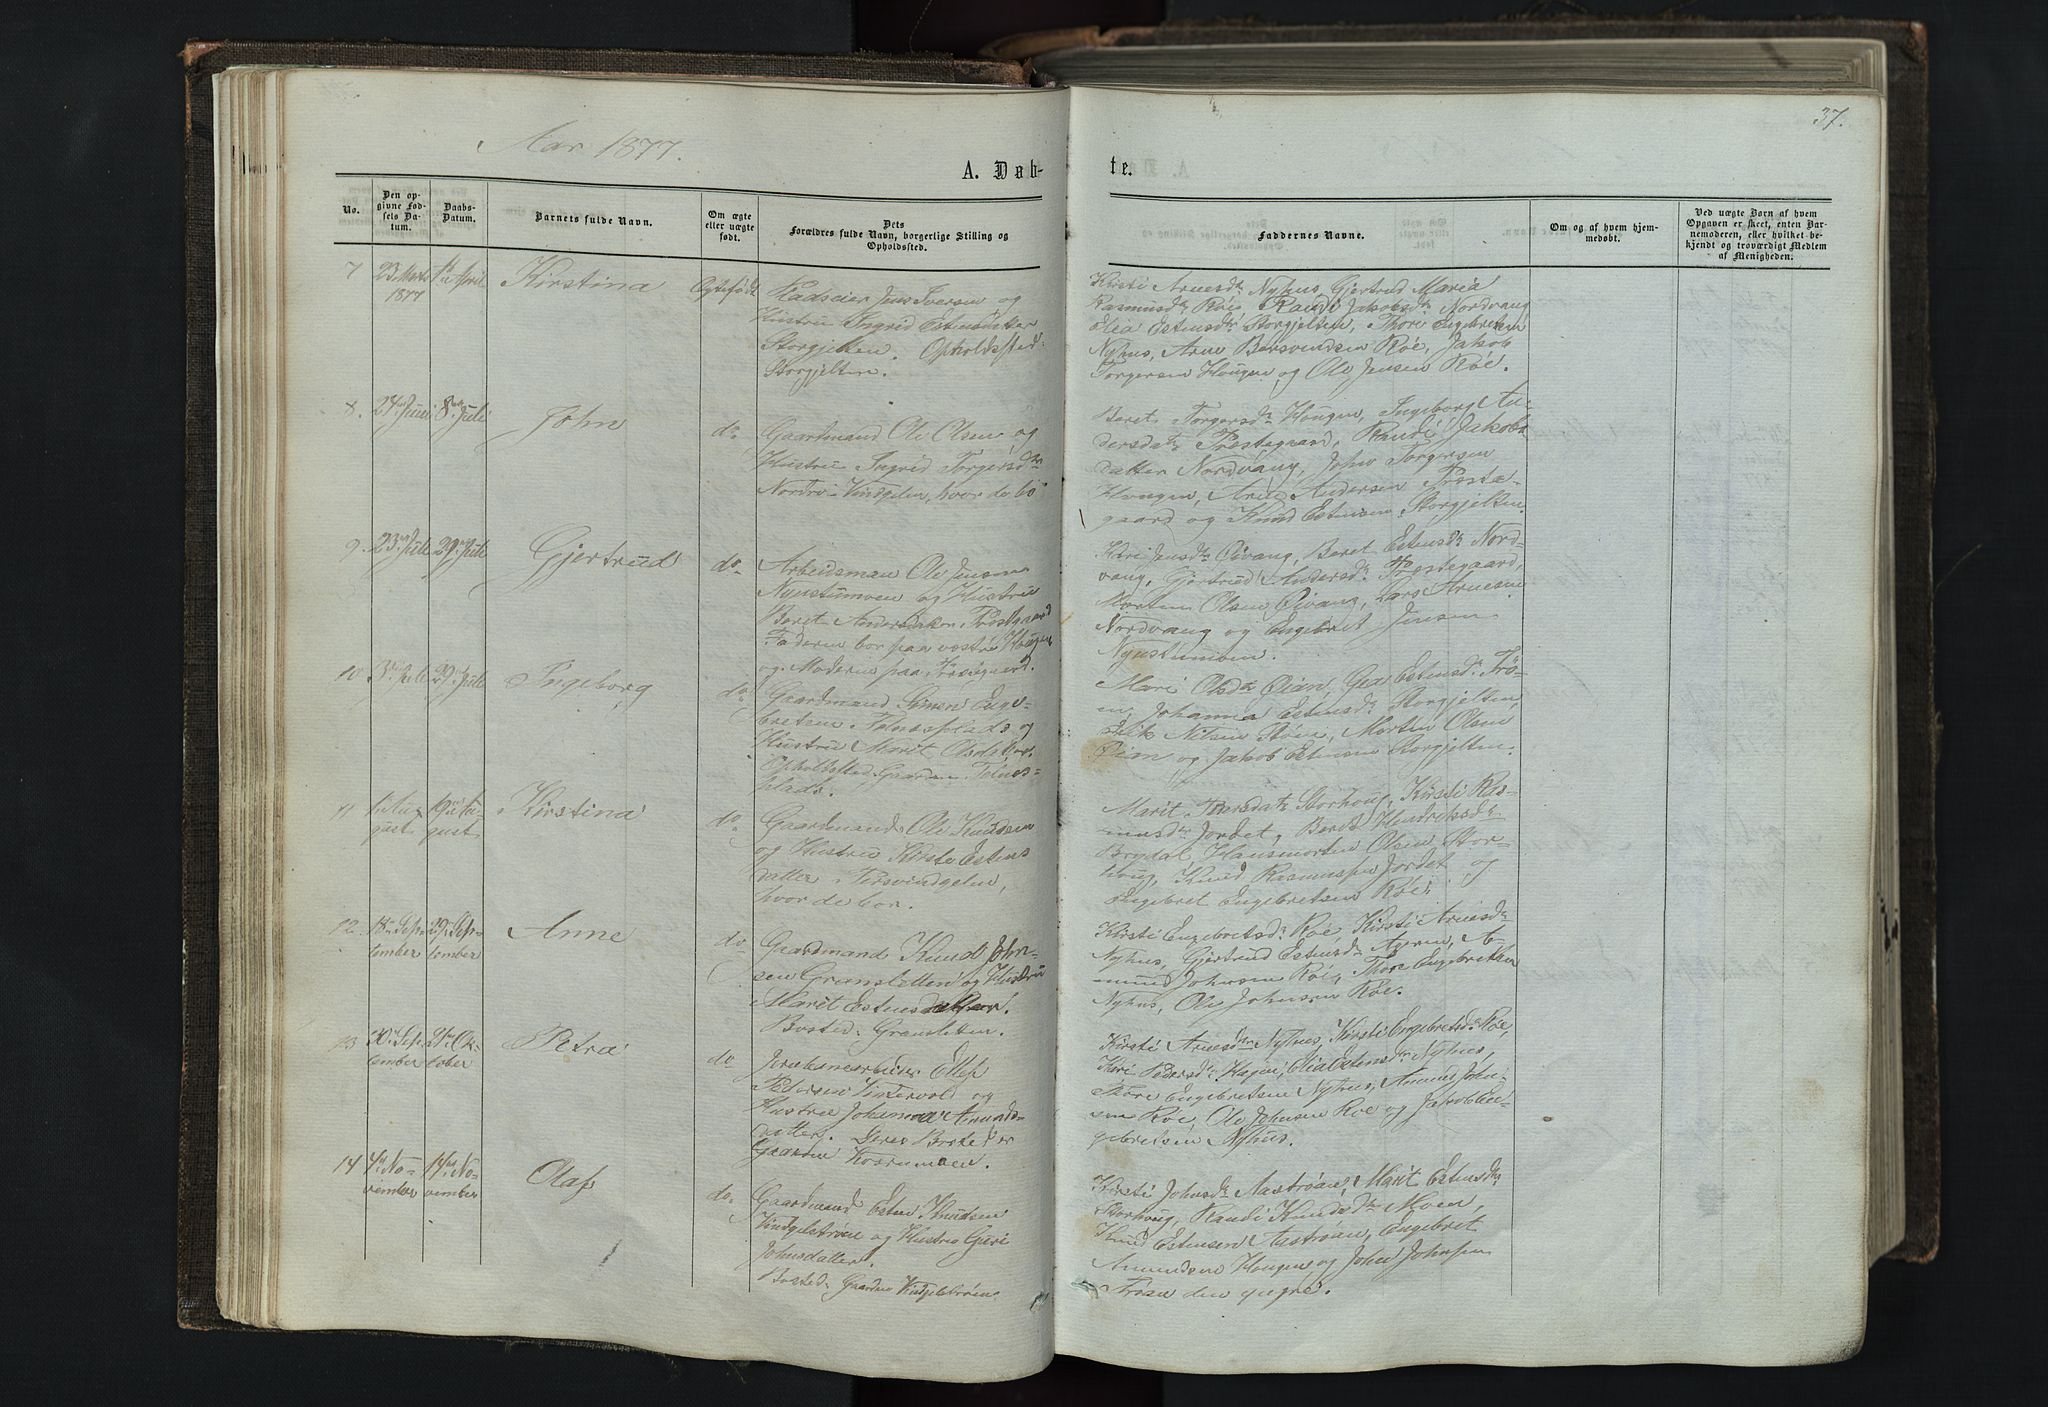 37.
Aar 1877.
A. Døb-
te.
No.
Den op-
givne Fød-
sels Da-
tum.
Daabs-
Datum.
Barnets fulde Navn.
Om ægte
eller uægte
født.
Dets
Forældres fulde Navn, borgerlige Stilling og
Opholdssted.
Faddernes Navne.
Om og af hvem hjem-
medøbt.
Ved uægte Børn af hvem
Opgaven er skeet, enten Bar-
nemoderen, eller hvilket be-
kjendt og troværdigt Medlem
af Menigheden.
7
23 Marts
1877
April
Kirstina
Ægtefødt
Pladseier Jens Iversen og
Hustru Ingrid Estensdatter
Storgjelten. Opholdssted:
Storgjelten.
Kirsti Arnesdtr Nyhus, Gjertrud Maria
Rasmusdtr Röe, Randi Jakobsdtr Nordvang
Elea Estensdtr Storgjelten, Thore Engebretsen
Nyhus, Arne Bersvendsen Röe, Jakob
Torgersen Hougen og Ole Jensen Röe.
8.
24de Juni
8de Juli
John
do.
Gaardmand Ole Olsen og
Hustru Ingrid Torgersdtr
Nordre Vindgelen, hvor de bo
Beret Torgersdtr Hougen, Ingeborg An-
dersdatr Præstegaard, Randi Jakobs
datter Nordvang, John Torgersen
Hougen, Arne Andersen Præste-
gaard og Knud Estensen Storgjelten.
9.
23 Juli
29 Juli
Gjertrud
do.
Arbeidsman Ole Jensen
Nyustumoen og Hustru
Beret Andersdatter Præstgaard
Faderen bor paa vestre Hougen
og Moderen paa Præstgaard.
Kari Jensdtr Öivang, Beret Estensdtr Nord-
vang, Gjertrud Andersdtr Præstegaard,
Morten Olsen Öivang, Lars Arnesen
Nordvang og Engebret Jensen
Nyustumoen.
10
3 Juli
29 Juli
Ingeborg
do.
Gaardmand Simen Enge-
bretsen Telnesplads og
Hustru Marit Olsdatter.
Opholdssted: Gaarden Telnes-
plads.
Mari Olsdtr Öian, Gea Estensdtr Trö-
en, Johanna Estensdtr Storgjelten,
Erik Nilsen Moen, Morten Olsen
Öian og Jakob Estensen Storgjelten.
11
1te Au-
gust
19de Au-
gust
Kirstina
do.
Gaardmand Ole Knudsen
og Hustru Kirsti Estens
datter Vindgelen,
hvor de bor.
Marit Storhoug, Kirsti Ras-
musdtr Jordet, Beret Hendriksdtr
Brydal, Hansmorten Olsen Stor-
houg, Knud Rasmussen Jordet og
Engebret Engebretsen Röe.
12
18 Sep-
tember
29 Sep-
tember
Anne
do
Gaardmand Knud John-
sen Gransletten og Hustru
Marit Estensdatter.
Bosted: Gransletten.
Kirsti Engebretsdtr Röe, Kirsti Arnesdtr
Nyhus, Gjertrud Estensdtr A-
mund Johnsen Röe, Thore Engebretsen
Nyhus, Ole Johnsen Röe.
13
20 Sep-
tember
21 Ok-
tober
Petra
do
Jernbanearbeider
Pedersen Vintervold og
Hustru Johanna Amunds-
datter. Deres Bosted er
Gaarden
Kirsti Arnesdtr Nyhus, Kirsti Engebretsdtr Röe,
Kari Pedersdtr Hagen, Elea Estensdtr Nyhus,
Thore Engebretsen Nyhus, Amund John-
sen Röe, Ole Johnsen Röe og Jakob En-
gebretsen Nyhus.
14
4 No-
vember
14 No-
vember
Olaf
do.
Gaardmand Esten Knudsen
Vindgelströen og Hustru Guri
Johnsdatter.
Bosted: Gaarden Vindgelströen.
Kirsti Johnsdtr Aaströen, Marit Estensdtr
Storhoug, Randi Knudsdtr Moen,
Knud Estensen Aaströen, Engebret
Amundsen Hougen og John Johnsen
Tröen den yngre.